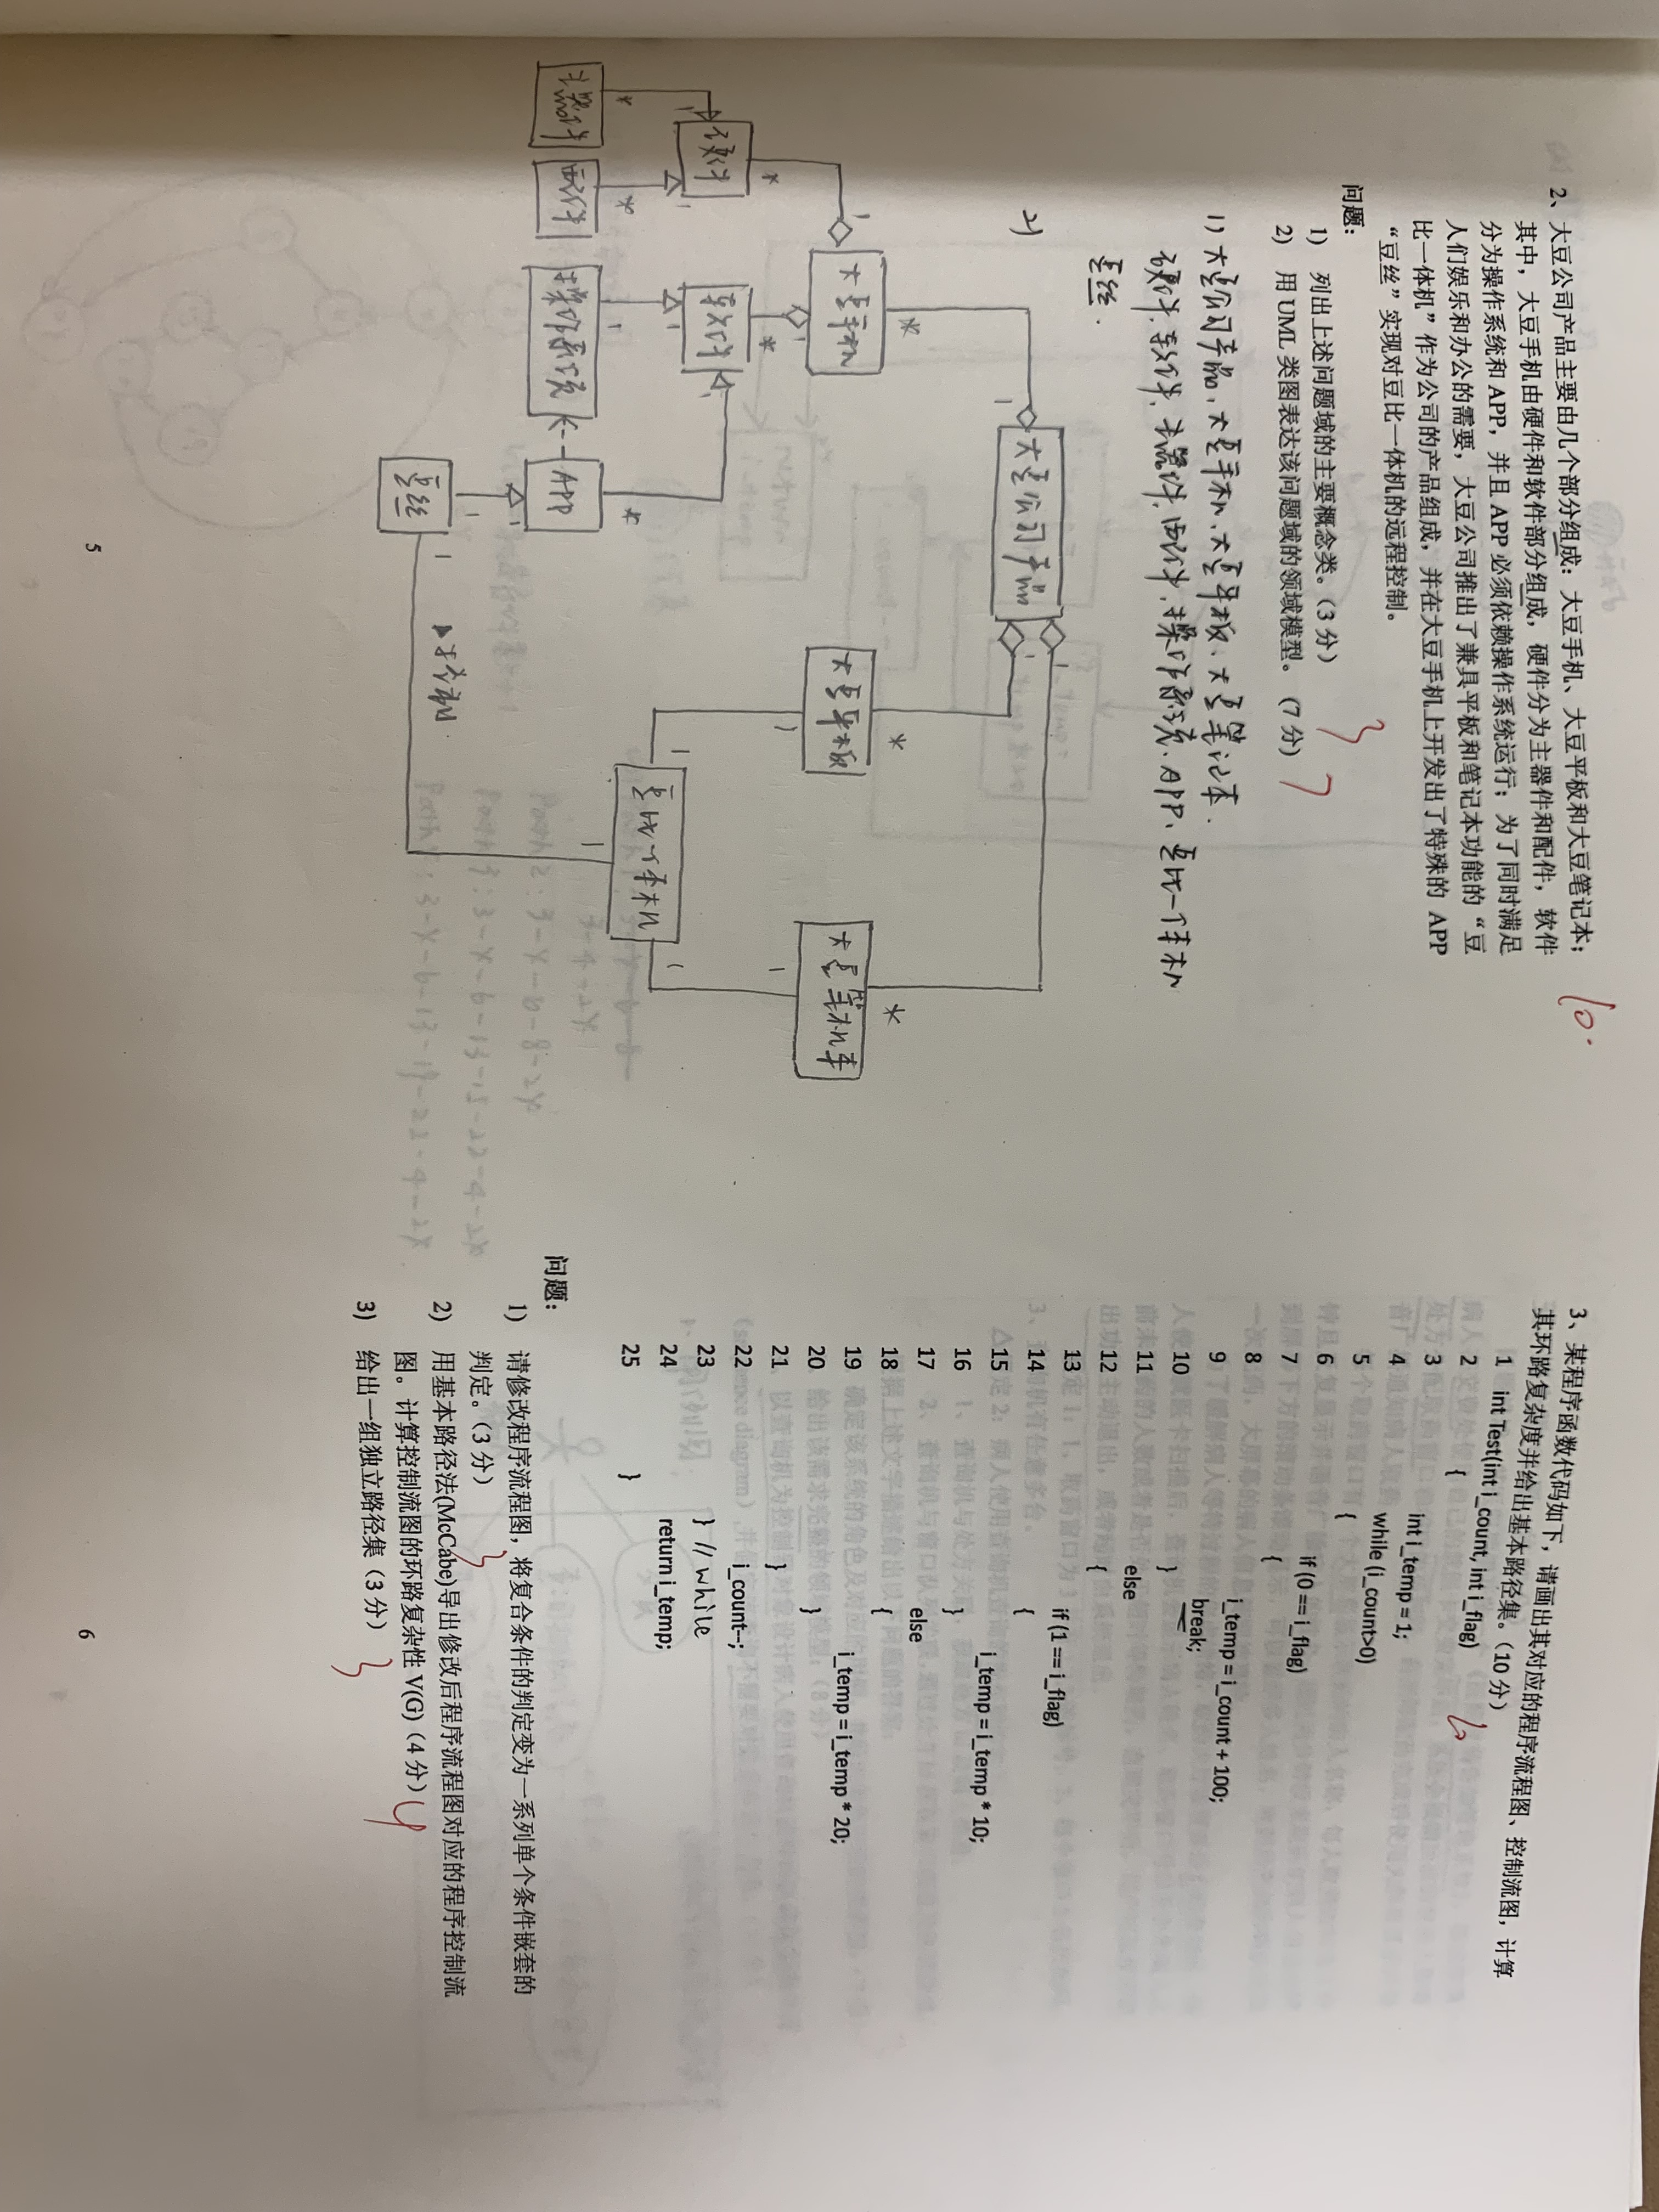 10.
2、大豆公司产品主要由几个部分组成：大豆手机、大豆平板和大豆笔记本；
其中，大豆手机由硬件和软件部分组成，硬件分为主器件和配件，软件
分为操作系统和 APP，并且 APP 必须依赖操作系统运行；为了同时满足
人们娱乐和办公的需要，大豆公司推出了兼具平板和笔记本功能的“豆
比一体机”作为公司的产品组成，并在大豆手机上开发出了特殊的 APP
“豆丝”实现对豆比一体机的远程控制。
问题：
1) 列出上述问题域的主要概念类。（3 分） 3
2) 用 UML 类图表达该问题域的领域模型。 (7 分) 7
1) 大豆公司产品、大豆手机、大豆平板、大豆笔记本.
硬件、软件、主器件、配件、操作系统、APP、豆比一体机
豆丝.
2)
大豆公司产品
1
1
1
*
*
*
大豆手机
大豆平板
大豆笔机本
1
1
1
1
*
*
硬件
软件
1
1
1
1
1
1
豆比一体机
1
*
*
1
*
主器件
配件
操作系统
APP
1
1
豆丝
1
控制
5
3、某程序函数代码如下，请画出其对应的程序流程图、控制流图，计算
其环路复杂度并给出基本路径集。（10 分）
1 int Test(int i_count, int i_flag)
2 {
3 int i_temp = 1;
4 while (i_count>0)
5 {
6 if (0 == i_flag)
7 {
8 i_temp = i_count + 100;
9 break;
10 }
11 else
12 {
13 if (1 == i_flag)
14 {
15 i_temp = i_temp * 10;
16 }
17 else
18 {
19 i_temp = i_temp * 20;
20 }
21 }
22 i_count--;
23 } // while
24 return i_temp;
25 }
问题：
1) 请修改程序流程图，将复合条件的判定变为一系列单个条件嵌套的
判定。（3 分） 3
2) 用基本路径法(McCabe)导出修改后程序流程图对应的程序控制流
图。计算控制流图的环路复杂性 V(G)（4 分） 4
3) 给出一组独立路径集（3 分） 3
6